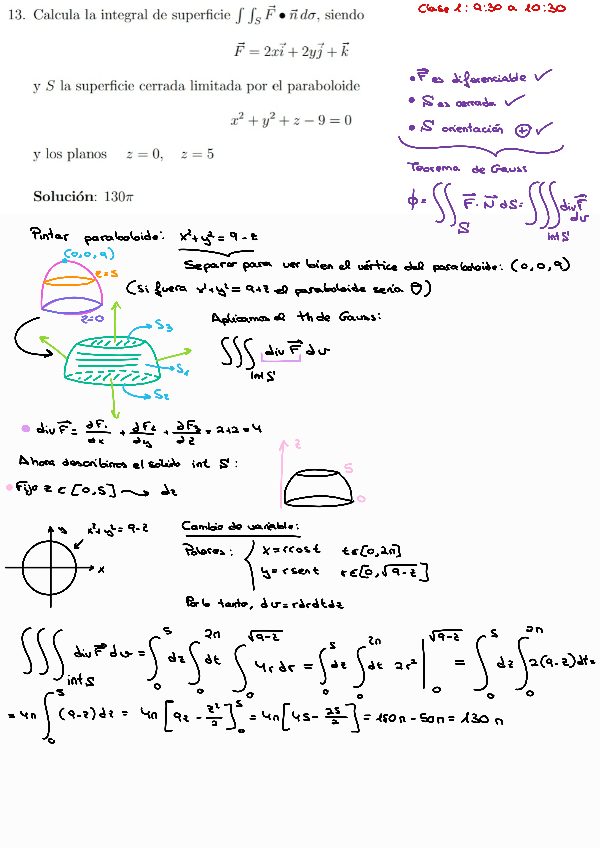 13. Calcula la integral de superficie ∫∫_S F⃗ • n⃗ dσ, siendo
F⃗ = 2x i⃗ + 2y j⃗ + k⃗
y S la superficie cerrada limitada por el paraboloide
x² + y² + z − 9 = 0
y los planos z = 0, z = 5
Solución: 130π
Clase 1: 9:30 a 10:30
• F⃗ es diferenciable ✓
• S es cerrada ✓
• S orientación ⊕ ✓
Teorema de Gauss
ϕ = ∬_S F⃗ · N⃗ dS = ∭_{int S} div F⃗ dv
Pintar paraboloide: x²+y² = 9-z
Separar para ver bien el vértice del paraboloide: (0,0,9)
(Si fuera x²+y² = 9+z el paraboloide sería
(0,0,9)
z=5
z=0
S₃
S₁
S₂
Aplicamos el th de Gauss:
∭_{int S} div F⃗ dv
• div F⃗ = ∂F₁/∂x + ∂F₂/∂y + ∂F₃/∂z = 2+2 = 4
Ahora describimos el sólido int S:
• Fijo z ∈ [0,5] → dz
z
5
0
x²+y² = 9-z
y
x
Cambio de variable:
Polares: { x = r cos t t ∈ [0,2π]
y = r sen t r ∈ [0,√(9-z)]
Por lo tanto, dv = r dr dt dz
∭_{int S} div F⃗ dv = ∫₀⁵ dz ∫₀^{2π} dt ∫₀^{√(9-z)} 4r dr = ∫₀⁵ dz ∫₀^{2π} dt 2r² |₀^{√(9-z)} = ∫₀⁵ dz ∫₀^{2π} 2(9-z) dt =
= 4π ∫₀⁵ (9-z) dz = 4π [9z - z²/2]₀⁵ = 4π [45 - 25/2] = 180π - 50π = 130π